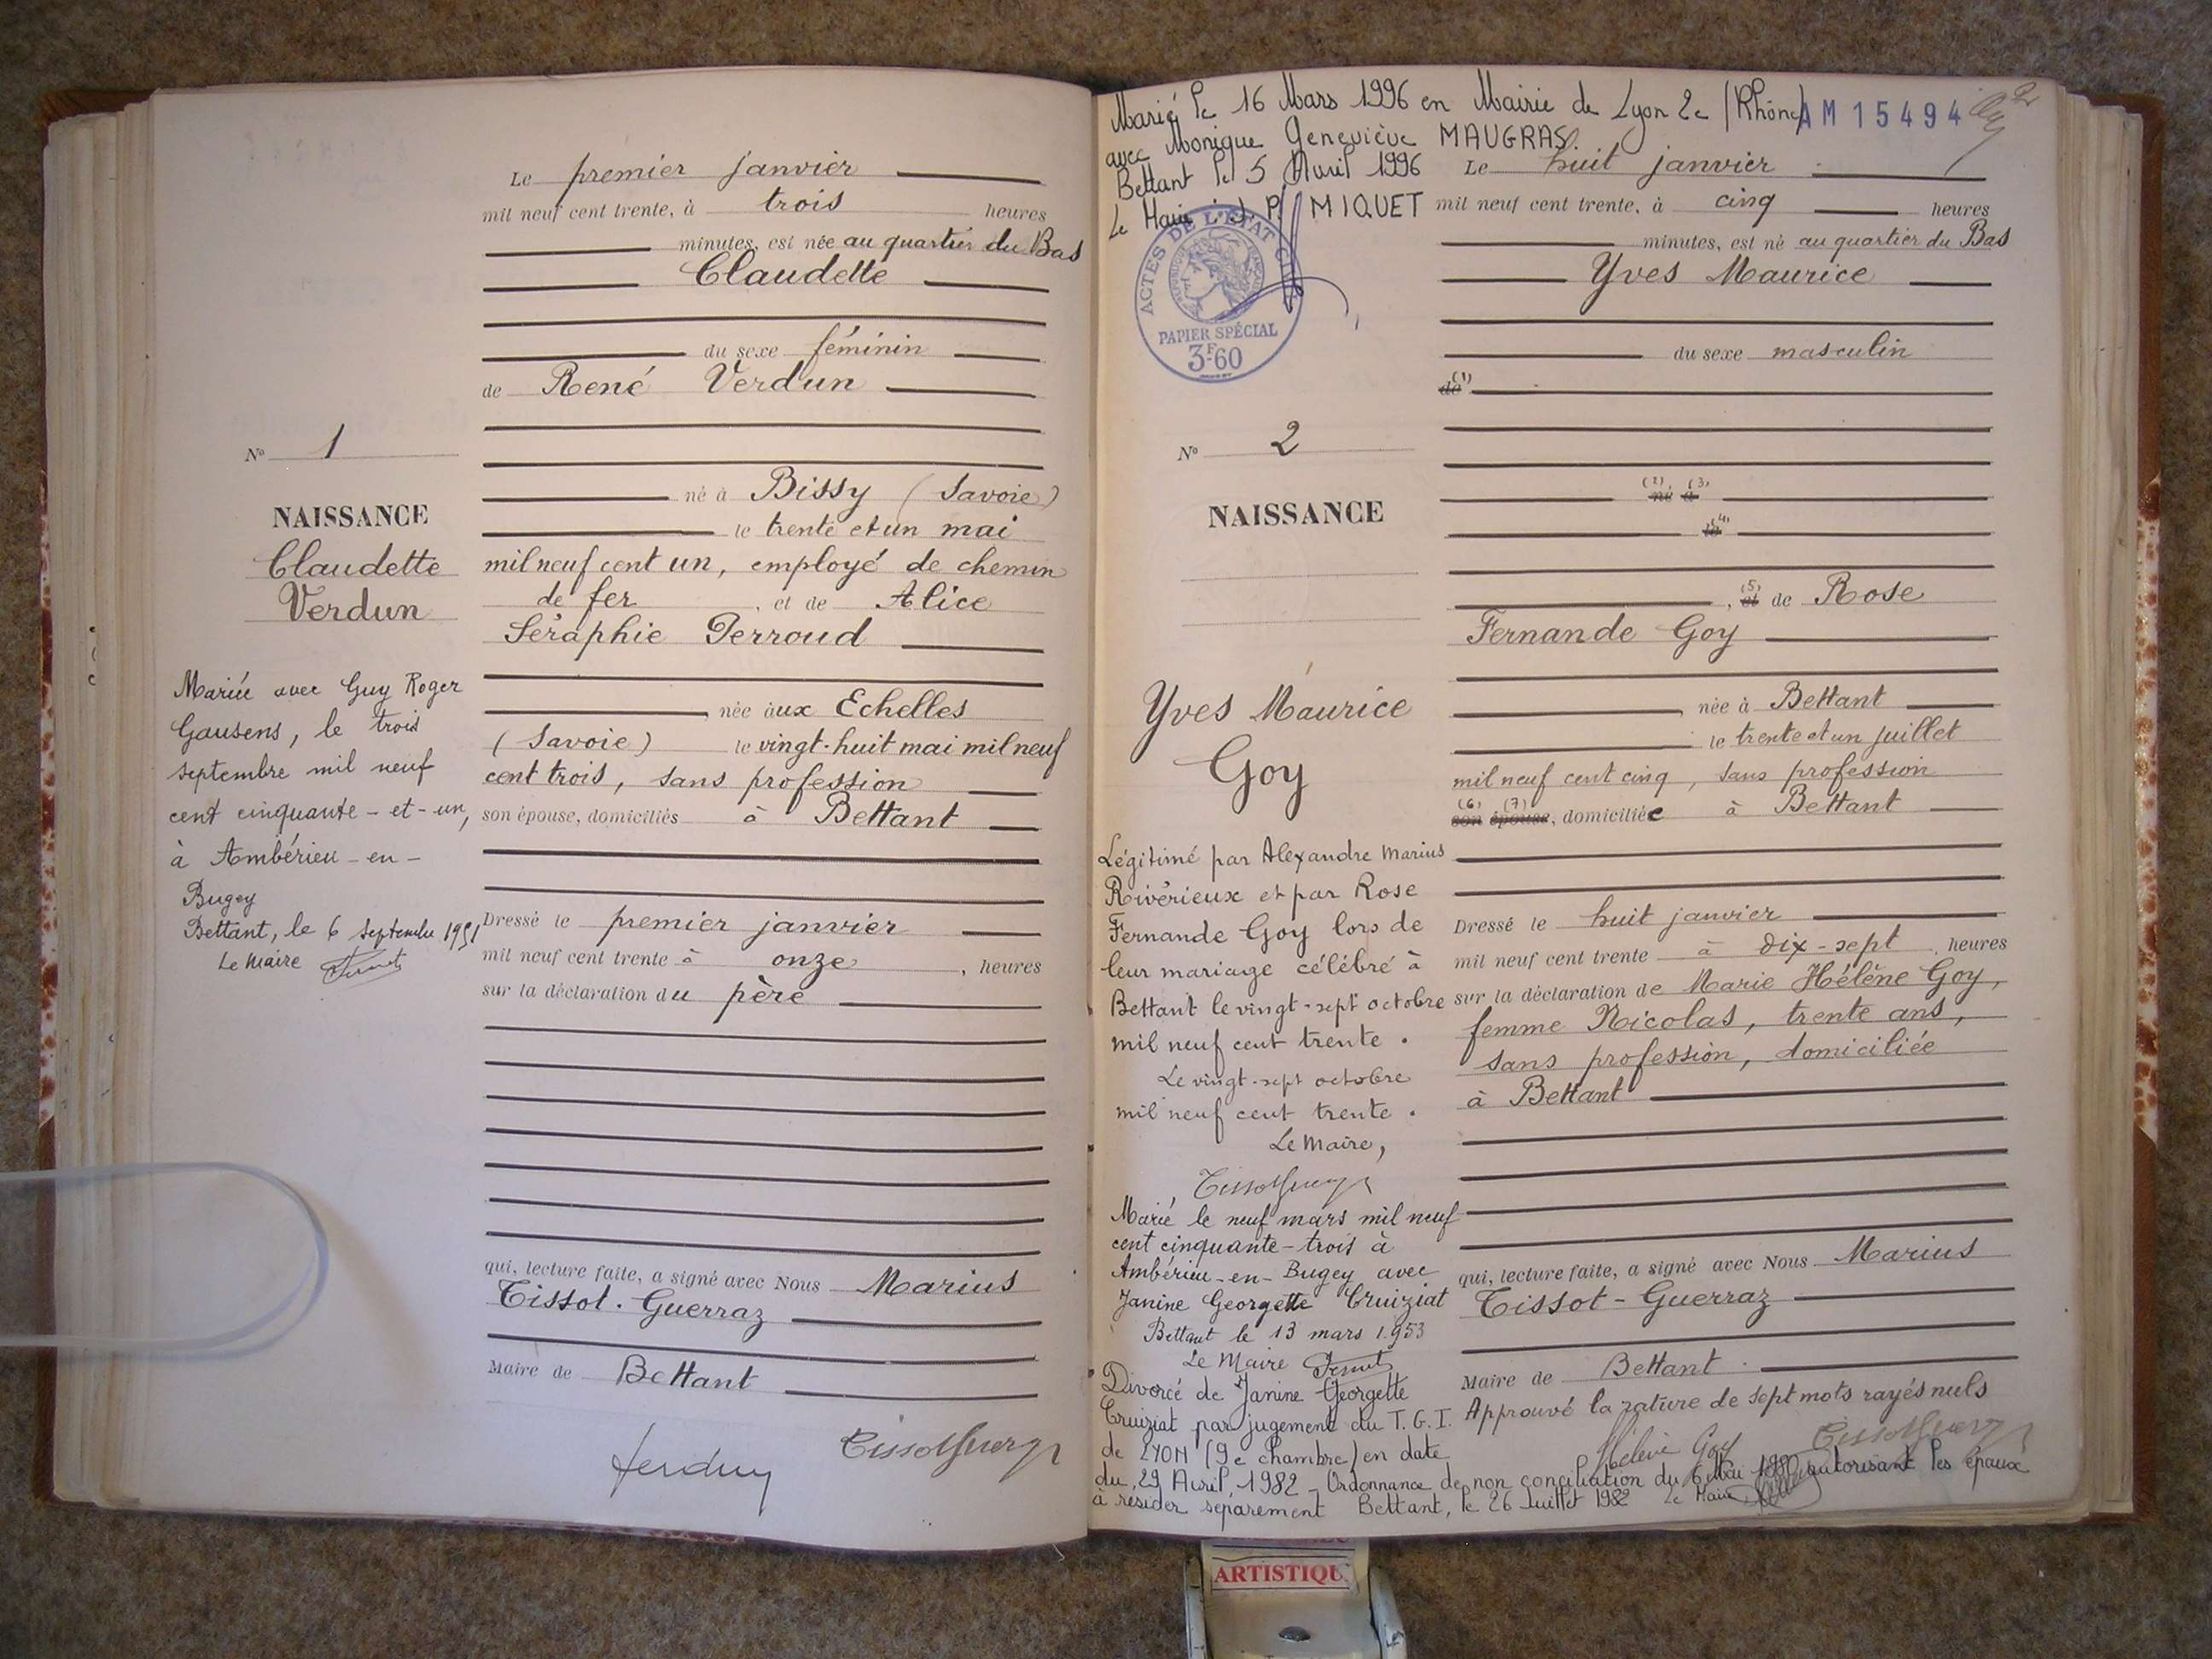 Le premier janvier
mil neuf cent trente, à trois heures
minutes, est née au quartier du Bas
Claudette
du sexe féminin
de René Verdun
né à Bissy (Savoie)
le trente et un mai
mil neuf cent un, employé de chemin
de fer, et de Alice
Séraphie Perroud
née aux Echelles
(Savoie) le vingt-huit mai mil neuf
cent trois, sans profession
son épouse, domiciliés à Bettant
Dressé le premier janvier
mil neuf cent trente à onze, heures
sur la déclaration du père
qui, lecture faite, a signé avec Nous Marius
Tissot-Guerraz
Maire de Bettant
Nº 1
NAISSANCE
Claudette
Verdun
Mariée avec Guy Roger
Gausens, le trois
septembre mil neuf
cent cinquante-et-un,
à Ambérieu-en-
Bugey
Bettant, le 6 septembre 1951
Le Maire
Marié le 16 Mars 1996 en Mairie de Lyon 2e (Rhône)
avec Monique Geneviève MAUGRAS.
Bettant le 5 Avril 1996
Le Maire P. MIQUET
AM 15494
ACTES DE L'ETAT CIVIL
PAPIER SPÉCIAL
3F60
Le huit janvier
mil neuf cent trente, à cinq heures
minutes, est né au quartier du Bas
Yves Maurice
du sexe masculin
de (1)
(2) né (3) à
(4) le
, (5) et de Rose
Fernande Goy
née à Bettant
le trente et un juillet
mil neuf cent cinq, sans profession
(6) son (7) épouse, domiciliée à Bettant
Dressé le huit janvier
mil neuf cent trente à dix-sept heures
sur la déclaration de Marie Hélène Goy,
femme Nicolas, trente ans,
sans profession, domiciliée
à Bettant
qui, lecture faite, a signé avec Nous Marius
Tissot-Guerraz
Maire de Bettant
Approuvé la rature de sept mots rayés nuls
Hélène Goy
Nº 2
NAISSANCE
Yves Maurice
Goy
Légitimé par Alexandre Marius
Rivérieux et par Rose
Fernande Goy lors de
leur mariage célébré à
Bettant le vingt-sept octobre
mil neuf cent trente.
Le vingt-sept octobre
mil neuf cent trente.
Le Maire,
Marié le neuf mars mil neuf
cent cinquante-trois à
Ambérieu-en-Bugey avec
Janine Georgette Cruiziat
Bettant le 13 mars 1953
Le Maire
Divorcé de Janine Georgette
Cruiziat par jugement du T.G.I.
de LYON (9e chambre) en date
du 29 Avril 1982 - Ordonnance de non conciliation du 6 Mai 1980 autorisant les époux
à résider séparement Bettant, le 26 Juillet 1982 Le Maire
ARTISTIQU